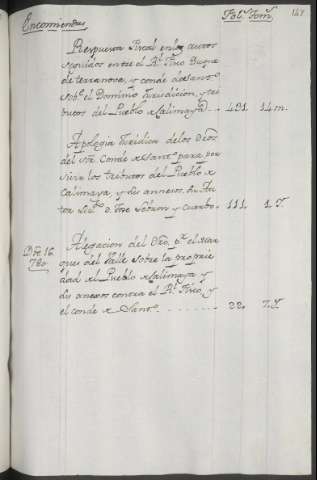 Encomiendas Fol.s Tom.s 147
Respuesta Fiscal en los autos
seguidos entre el R.l Fisco Duque
de terranova, y conde de Sant.o
sob.e el Dominio Jurisdicion, y tri
butos del Pueblo de Calimaya . . 491. 14 m.
Apologia Juridica de los dros
del Sor. Conde de Sant.o para per
sivir los tributos del Pueblo de
Calimaya, y sus annexos. Su Au
tor Lic.do D. Jose Lebron y Cuervo. 111. 1 J
Alegacion del Dro. q.e el Mar
ques del Valle sobre la proprie
dad del Pueblo de Calimaya y
sus anexos contra el R.l Fisco, y
el conde de Sant.o . . . . . . . 22. 7 J